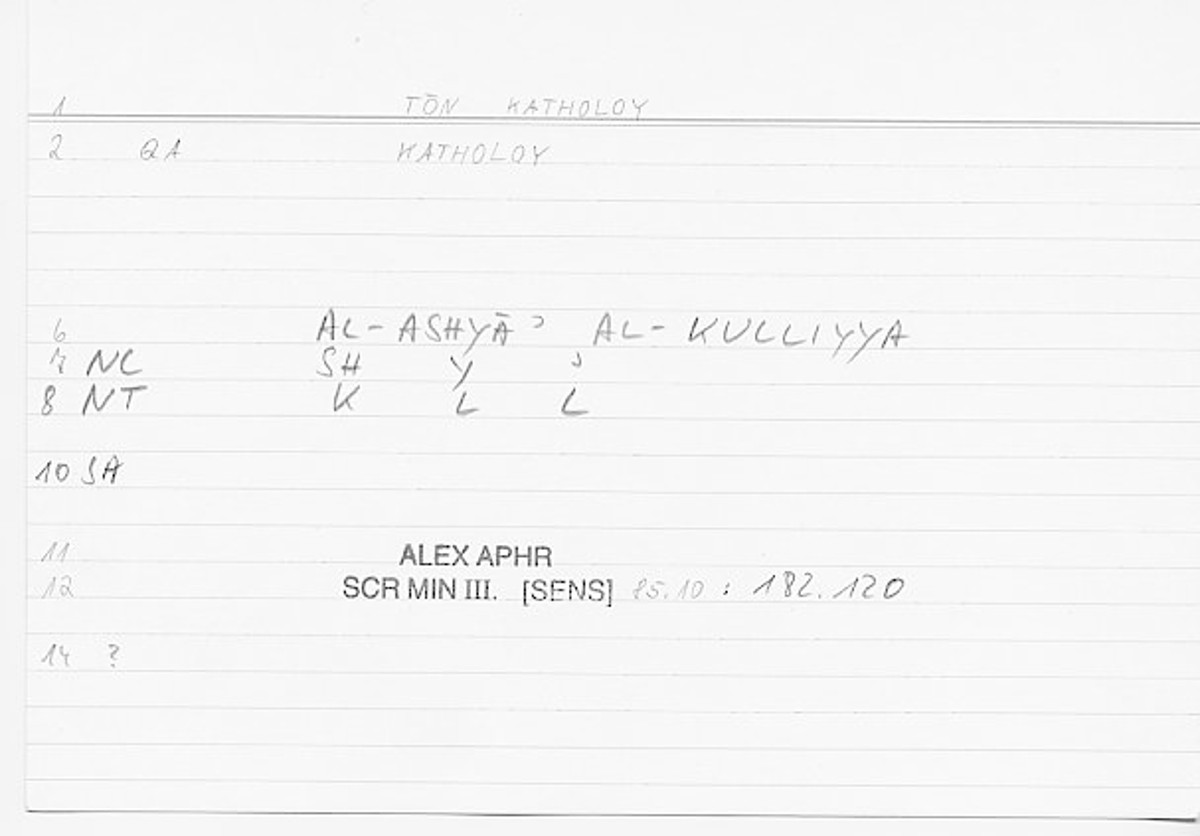 1 TŌN KATHOLOY
2 QA KATHOLOY
6 AL-ASHYĀʾ AL-KULLIYYA
7 NC SH Y ʾ
8 NT K L L
10 SA
11 ALEX APHR
12 SCR MIN III. [SENS] 85.10 : 182.120
14 ?